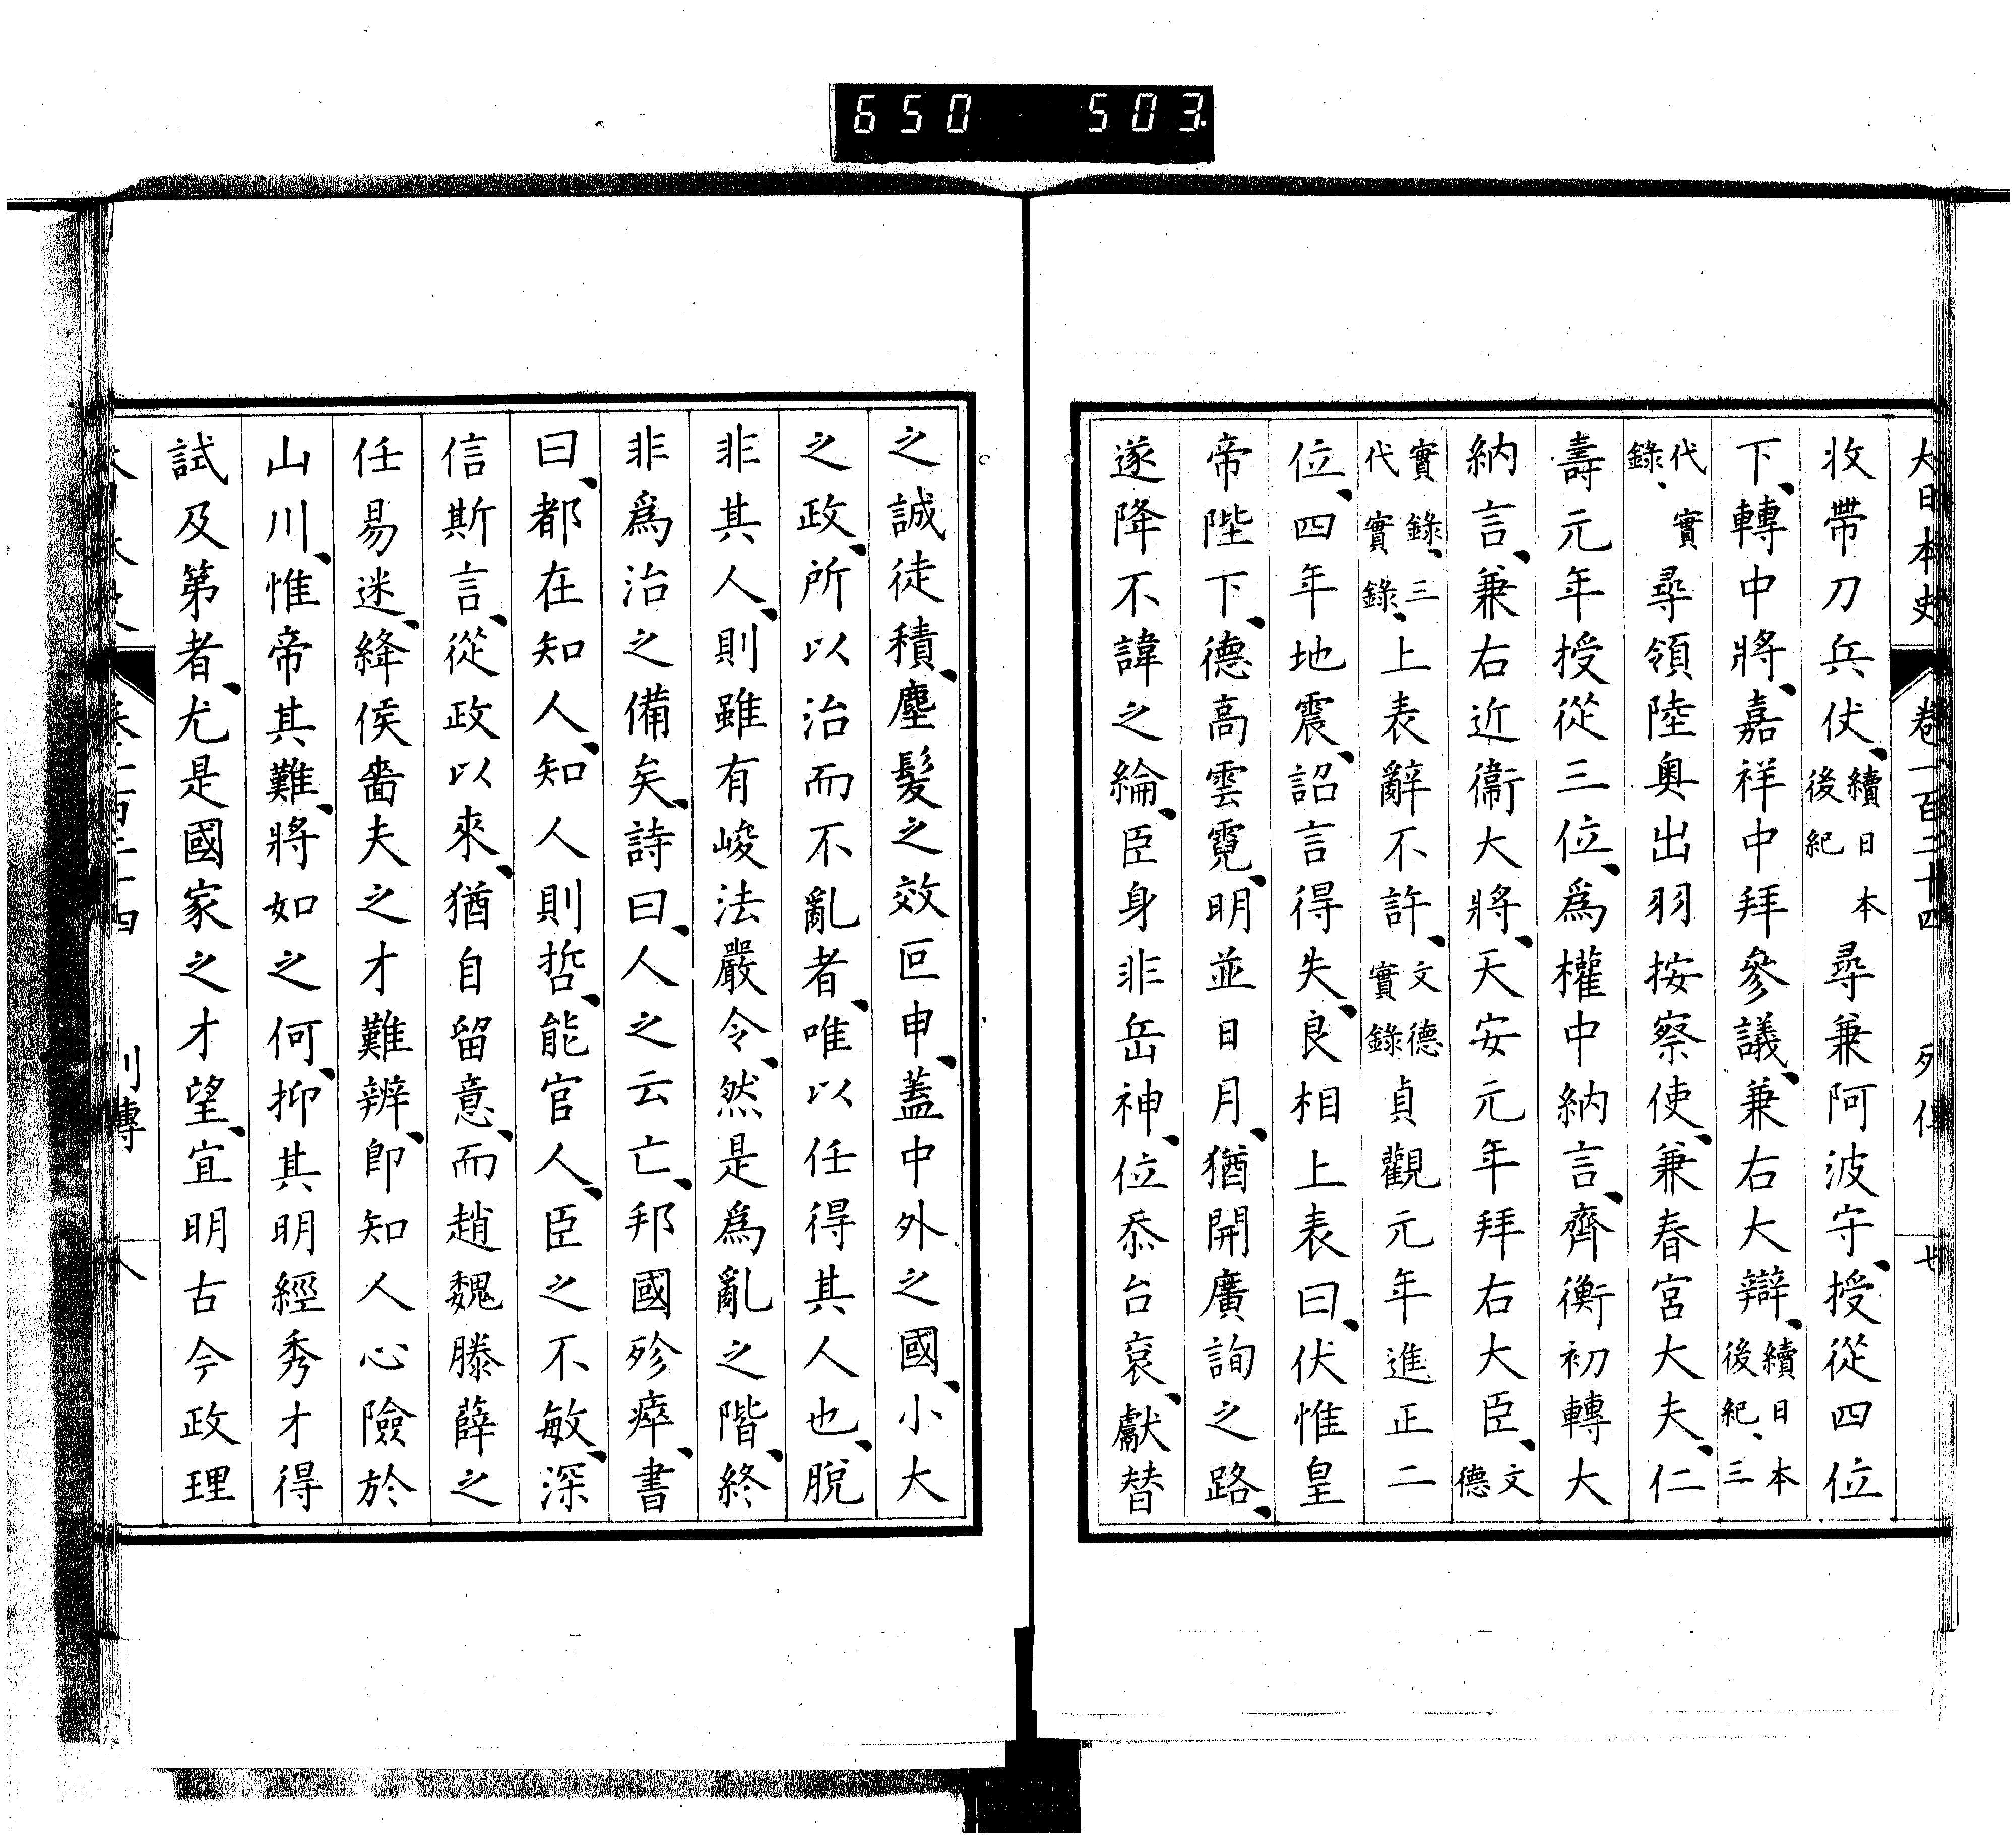 650 503
大日本史 卷一百二十四 列傳 七
收帶刀兵仗、續日本後紀尋兼阿波守、授從四位
下、轉中將、嘉祥中拜參議、兼右大辯、續日本後紀、三
代實錄、尋領陸奧出羽按察使、兼春宮大夫、仁
壽元年授從三位、爲權中納言、齊衡初轉大
納言、兼右近衞大將、天安元年拜右大臣、文德
實錄、三代實錄、上表辭不許、文德實錄貞觀元年進正二
位、四年地震、詔言得失、良相上表曰、伏惟皇
帝陛下、德高雲霓、明並日月、猶開廣詢之路、
遂降不諱之綸、臣身非岳神、位忝台袞、獻替
之誠徒積、塵髮之效叵申、蓋中外之國、小大
之政、所以治而不亂者、唯以任得其人也、脫
非其人、則雖有峻法嚴令、然是爲亂之階、終
非爲治之備矣、詩曰、人之云亡、邦國殄瘁、書
曰、都在知人、知人則哲、能官人、臣之不敏、深
信斯言、從政以來、猶自留意、而趙魏滕薛之
任易迷、絳侯嗇夫之才難辨、卽知人心險於
山川、惟帝其難、將如之何、抑其明經秀才得
試及第者、尤是國家之才望、宜明古今政理
列傳 八